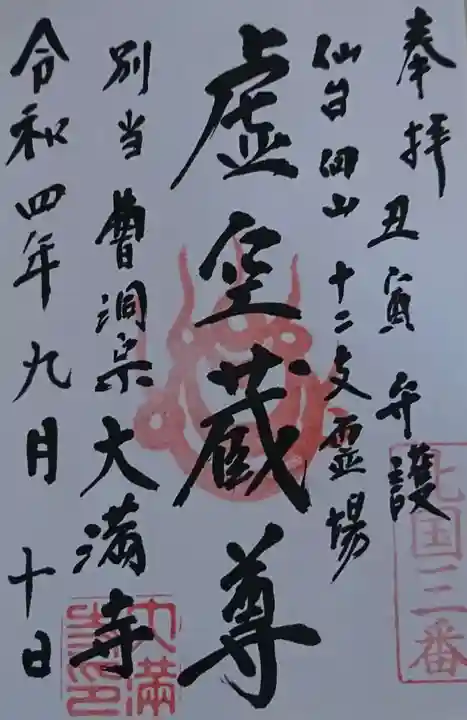 奉拝
丑寅弁護
仙台四山十二支霊場
虚空蔵尊
別当曹洞宗大満寺
令和四年九月十日
北国三番
大満